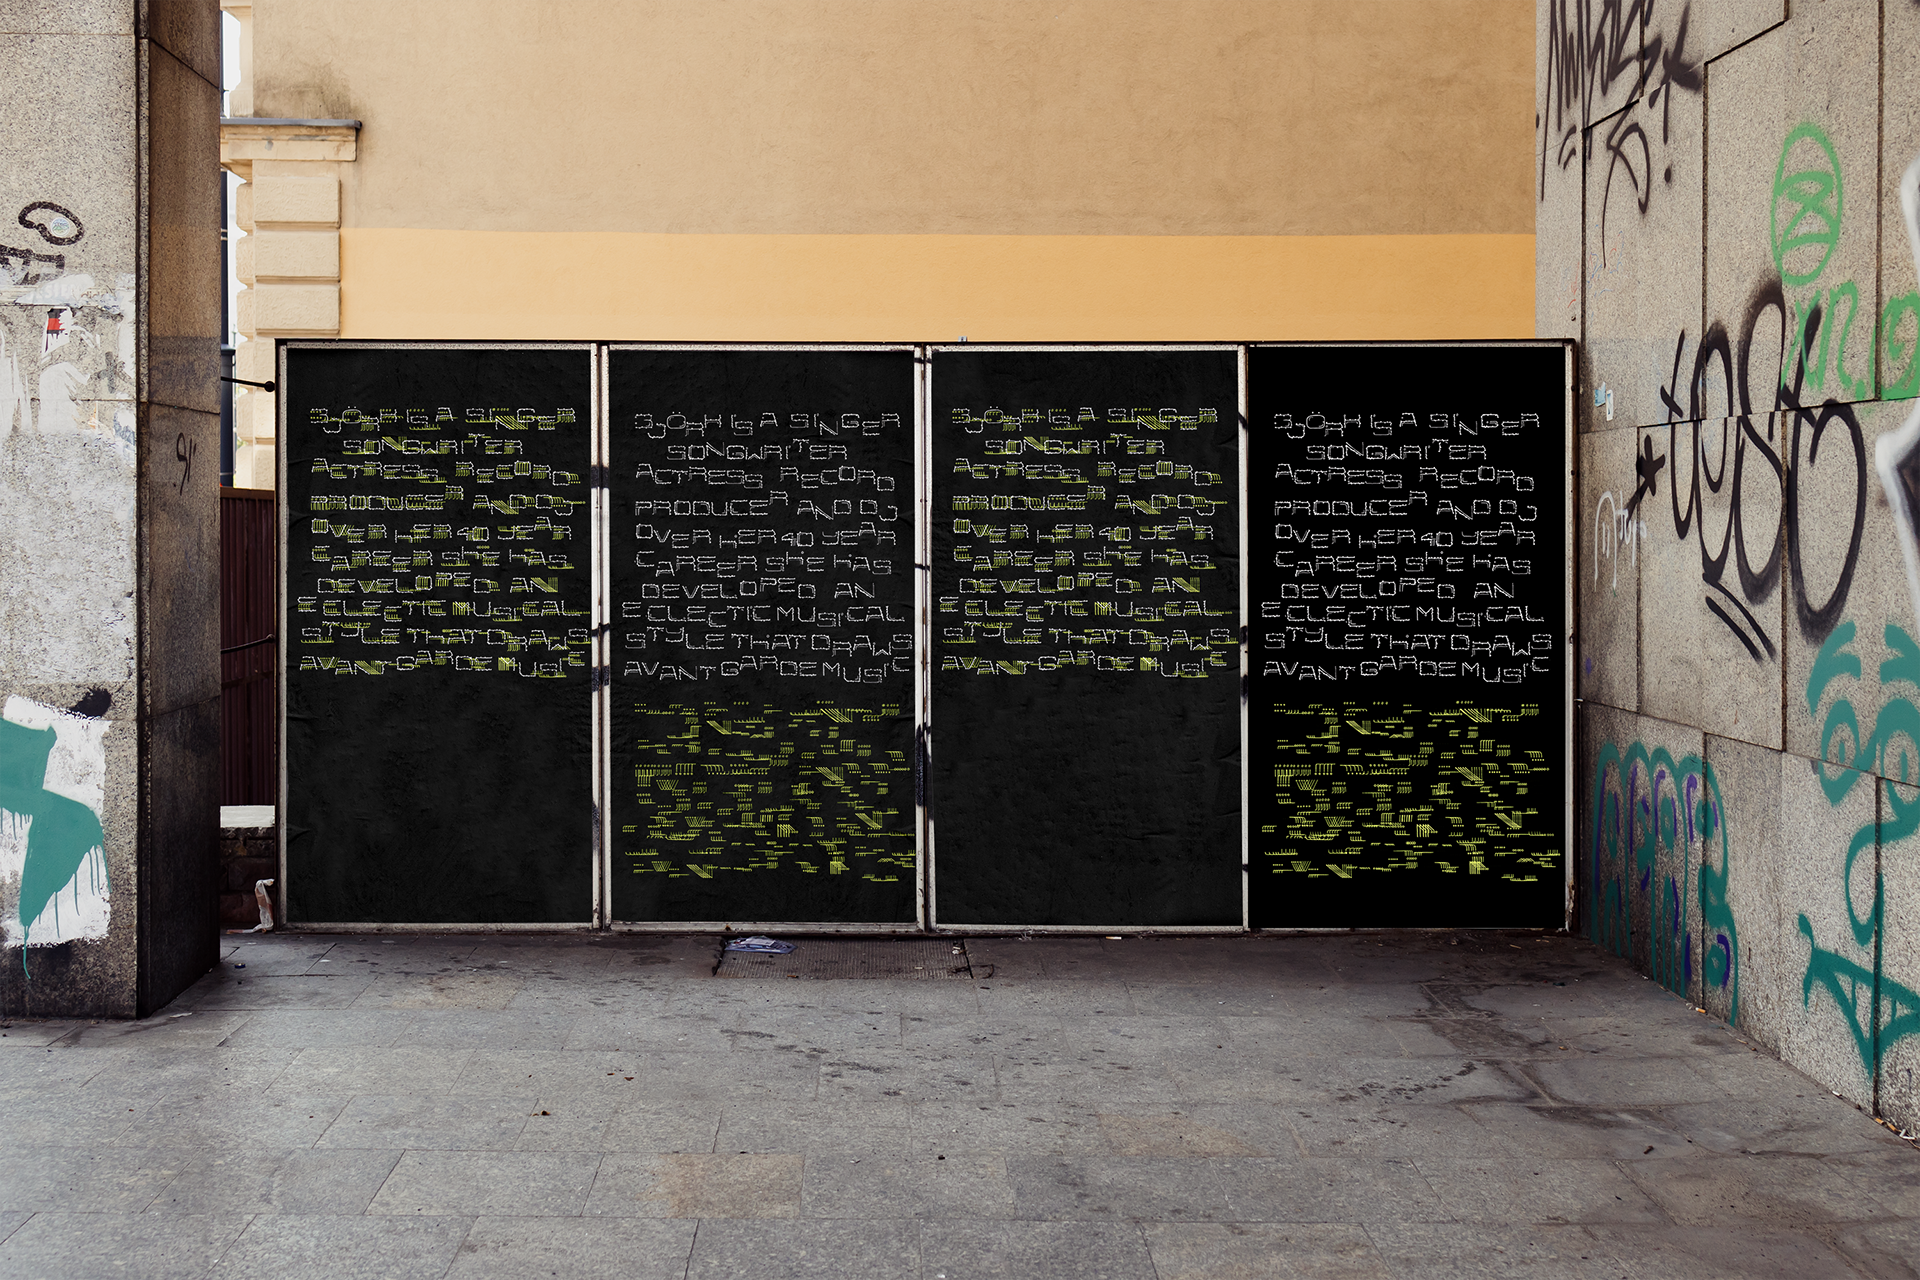 BJÖRK IS A SINGER
SONGWRITER
ACTRESS RECORD
PRODUCER AND DJ
OVER HER 40 YEAR
CAREER SHE HAS
DEVELOPED AN
ECLECTIC MUSICAL
STYLE THAT DRAWS
AVANT GARDE MUSIC
BJÖRK IS A SINGER
SONGWRITER
ACTRESS RECORD
PRODUCER AND DJ
OVER HER 40 YEAR
CAREER SHE HAS
DEVELOPED AN
ECLECTIC MUSICAL
STYLE THAT DRAWS
AVANT GARDE MUSIC
BJÖRK IS A SINGER
SONGWRITER
ACTRESS RECORD
PRODUCER AND DJ
OVER HER 40 YEAR
CAREER SHE HAS
DEVELOPED AN
ECLECTIC MUSICAL
STYLE THAT DRAWS
AVANT GARDE MUSIC
BJÖRK IS A SINGER
SONGWRITER
ACTRESS RECORD
PRODUCER AND DJ
OVER HER 40 YEAR
CAREER SHE HAS
DEVELOPED AN
ECLECTIC MUSICAL
STYLE THAT DRAWS
AVANT GARDE MUSIC